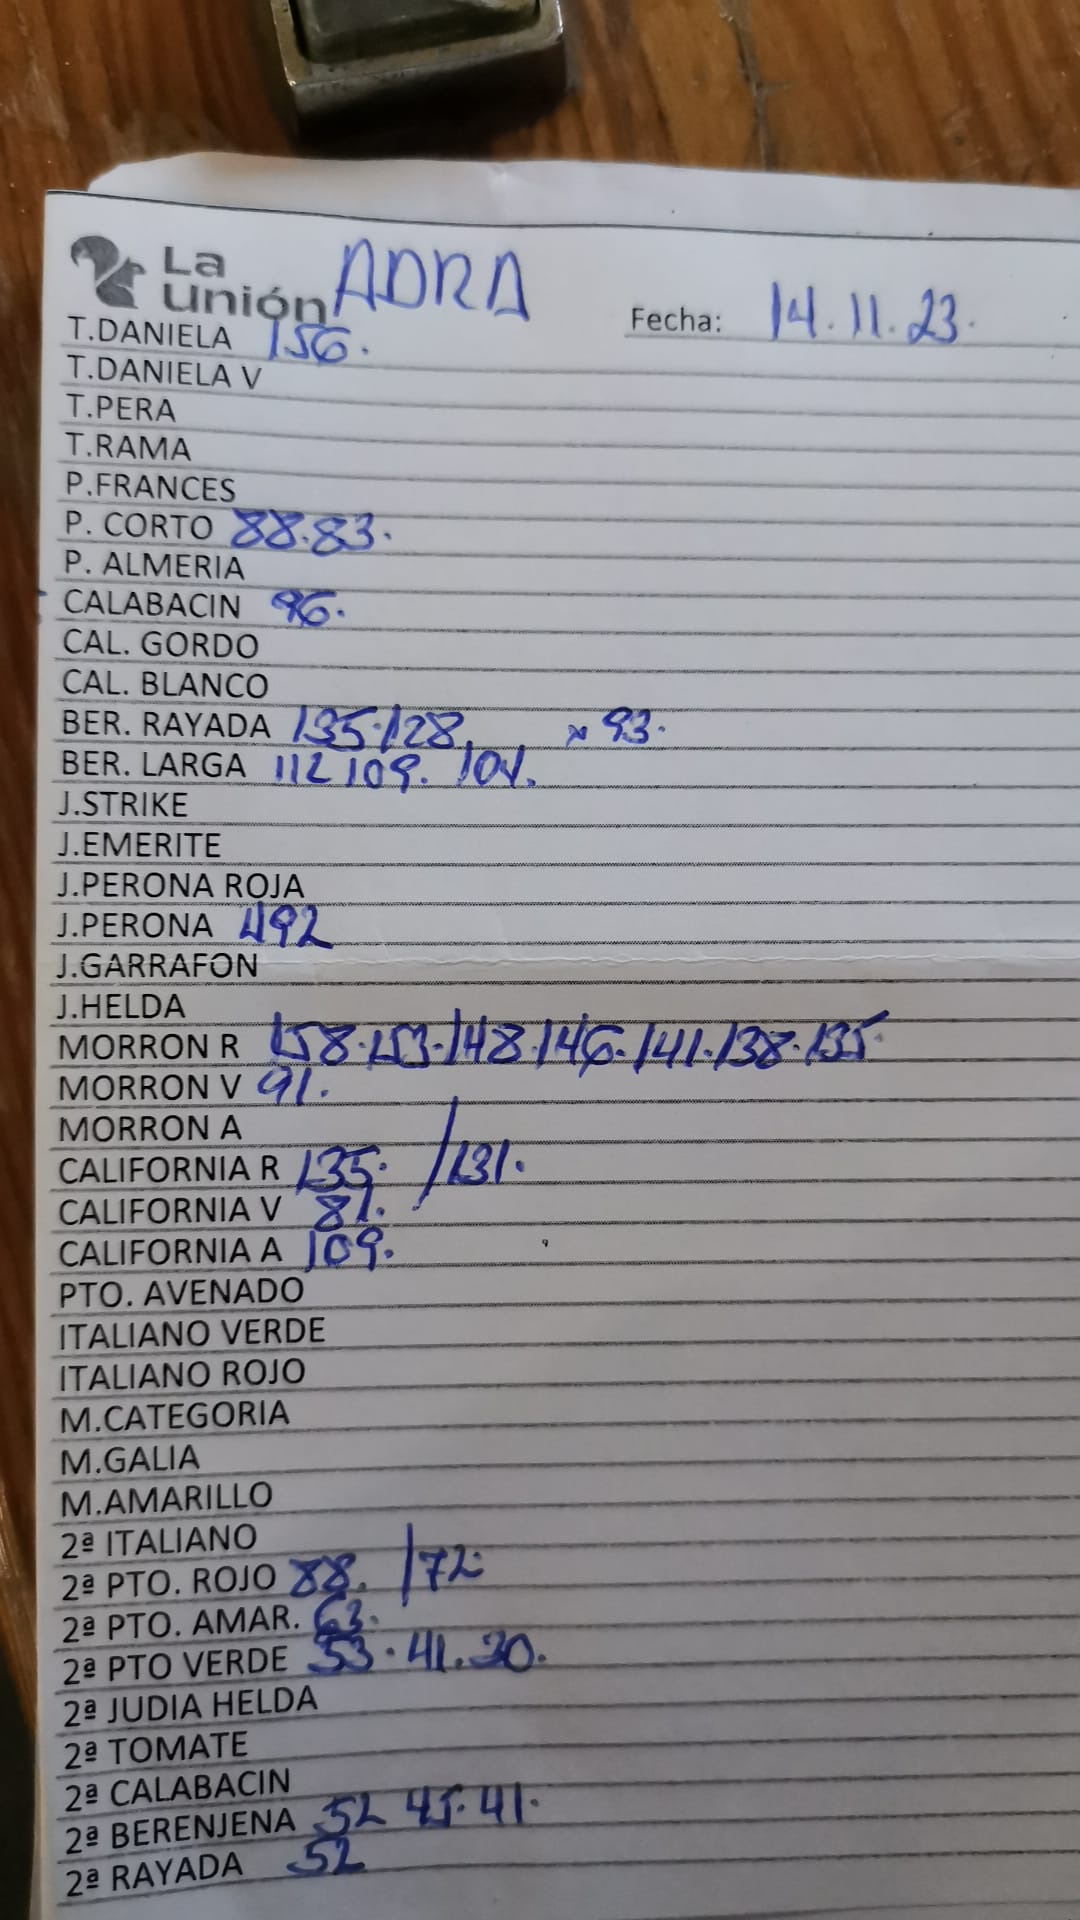 La unión ADRA Fecha: 14.11.23.
T.DANIELA 156.
T.DANIELA V
T.PERA
T.RAMA
P.FRANCES
P. CORTO 88.83.
P. ALMERIA
CALABACIN 96.
CAL. GORDO
CAL. BLANCO
BER. RAYADA 135.128. x 93.
BER. LARGA 112 109. 104.
J.STRIKE
J.EMERITE
J.PERONA ROJA
J.PERONA 492
J.GARRAFON
J.HELDA
MORRON R 158.153.148.146.141.138.135.
MORRON V 91.
MORRON A
CALIFORNIA R 135. /131.
CALIFORNIA V 81.
CALIFORNIA A 109.
PTO. AVENADO
ITALIANO VERDE
ITALIANO ROJO
M.CATEGORIA
M.GALIA
M.AMARILLO
2ª ITALIANO
2ª PTO. ROJO 88. /72.
2ª PTO. AMAR. 63.
2ª PTO VERDE 53.41.30.
2ª JUDIA HELDA
2ª TOMATE
2ª CALABACIN
2ª BERENJENA 52 45.41.
2ª RAYADA 52